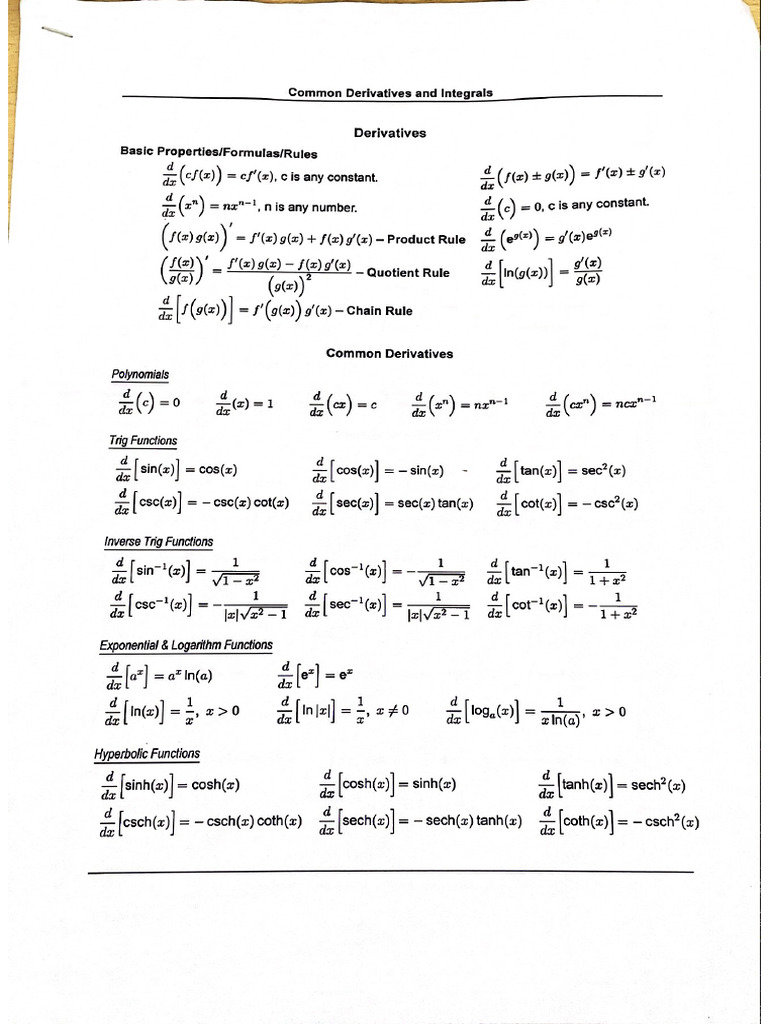 Common Derivatives and Integrals
Derivatives
Basic Properties/Formulas/Rules
d/dx (cf(x)) = cf′(x), c is any constant. d/dx (f(x) ± g(x)) = f′(x) ± g′(x)
d/dx (xⁿ) = nxⁿ⁻¹, n is any number. d/dx (c) = 0, c is any constant.
(f(x) g(x))′ = f′(x) g(x) + f(x) g′(x) – Product Rule d/dx (e^g(x)) = g′(x)e^g(x)
(f(x)/g(x))′ = (f′(x) g(x) − f(x) g′(x))/(g(x))² – Quotient Rule d/dx [ln(g(x))] = g′(x)/g(x)
d/dx [f(g(x))] = f′(g(x)) g′(x) – Chain Rule
Common Derivatives
Polynomials
d/dx (c) = 0 d/dx (x) = 1 d/dx (cx) = c d/dx (xⁿ) = nxⁿ⁻¹ d/dx (cxⁿ) = ncxⁿ⁻¹
Trig Functions
d/dx [sin(x)] = cos(x) d/dx [cos(x)] = − sin(x) d/dx [tan(x)] = sec²(x)
d/dx [csc(x)] = − csc(x) cot(x) d/dx [sec(x)] = sec(x) tan(x) d/dx [cot(x)] = − csc²(x)
Inverse Trig Functions
d/dx [sin⁻¹(x)] = 1/√(1 − x²) d/dx [cos⁻¹(x)] = − 1/√(1 − x²) d/dx [tan⁻¹(x)] = 1/(1 + x²)
d/dx [csc⁻¹(x)] = − 1/(|x|√(x² − 1)) d/dx [sec⁻¹(x)] = 1/(|x|√(x² − 1)) d/dx [cot⁻¹(x)] = − 1/(1 + x²)
Exponential & Logarithm Functions
d/dx [aˣ] = aˣ ln(a) d/dx [eˣ] = eˣ
d/dx [ln(x)] = 1/x, x > 0 d/dx [ln |x|] = 1/x, x ≠ 0 d/dx [logₐ(x)] = 1/(x ln(a)), x > 0
Hyperbolic Functions
d/dx [sinh(x)] = cosh(x) d/dx [cosh(x)] = sinh(x) d/dx [tanh(x)] = sech²(x)
d/dx [csch(x)] = − csch(x) coth(x) d/dx [sech(x)] = − sech(x) tanh(x) d/dx [coth(x)] = − csch²(x)